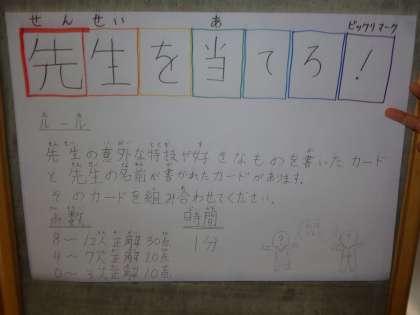 せんせい あ ビックリマーク
先生を当てろ！
ルール
先生の意外な特技や好きなものを書いたカード
と先生の名前が書かれたカードがあります。
そのカードを組み合わせてください。
点数 時間
8〜12人正解30点 1分
4〜7人正解20点
0〜3人正解10点